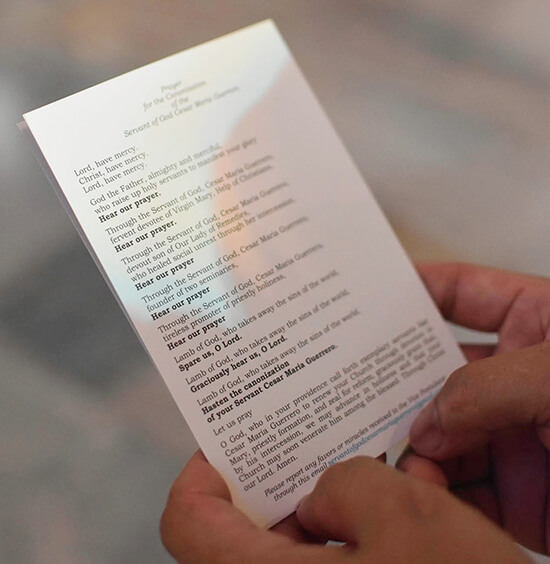 Prayer
for the Canonization
of the
Servant of God Cesar Maria Guerrero
Lord, have mercy.
Christ, have mercy.
Lord, have mercy.
God the Father, almighty and merciful,
who raise up holy servants to manifest your glory
Hear our prayer.
Through the Servant of God, Cesar Maria Guerrero,
fervent devotee of Virgin Mary, Help of Christians,
Hear our prayer.
Through the Servant of God, Cesar Maria Guerrero,
devout son of Our Lady of Remedies,
who healed social unrest through her intercession,
Hear our prayer
Through the Servant of God, Cesar Maria Guerrero,
founder of two seminaries,
Hear our prayer
Through the Servant of God, Cesar Maria Guerrero,
tireless promoter of priestly holiness,
Hear our prayer
Lamb of God, who takes away the sins of the world,
Spare us, O Lord.
Lamb of God, who takes away the sins of the world,
Graciously hear us, O Lord.
Lamb of God, who takes away the sins of the world,
Hasten the canonization
of your Servant Cesar Maria Guerrero.
Let us pray
O God, who in your providence call forth exemplary servants like
Cesar Maria Guerrero to renew your Church through devotion to
Mary, priestly formation, and zeal for
by his intercession, we may advance in holiness and that your
Church may soon venerate him among the blessed. Through Christ
our Lord. Amen.
Please report any favors or miracles received to the Vice Postulator
through this email